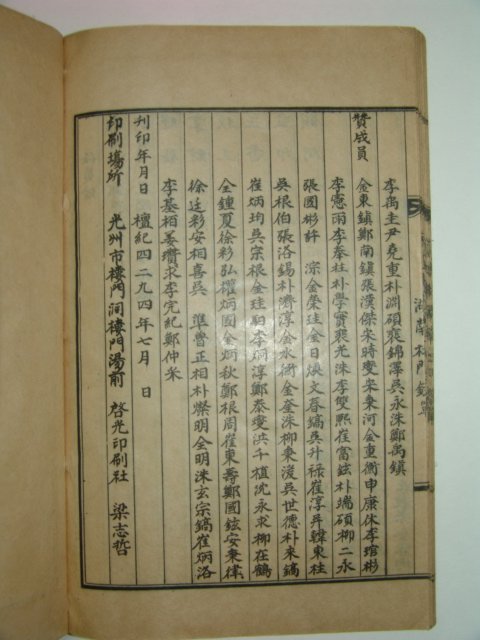 李禹圭尹堯重朴淵碩裵錦澤吳永洙鄭禹鎭
贊成員
金東鎭鄭南鎭張漢傑宋時燮宋秉河金重衡申康休李琯彬
李憲雨李奉柱朴學實裵光洙李雙熙崔富鉉朴端碩柳二永
張國彬許 淙金榮珪金日煥文春鎬吳升祿崔淳昇韓東柱
吳根伯張洛錫朴濟淳金水衡金奎洙柳東浚吳世德朴來鎬
崔炳均吳宗根金珪駉李炯淳鄭泰燮洪千植沈永求柳在鶴
金鍾夏徐彩弘權炳國金炳秋鄭根周崔東壽鄭國鉉安秉律
徐廷彩安相喜吳 準曺正相朴燦明金明洙玄宗鎬崔炳洛
李基栢姜瓚求李完紀鄭仲采
刊印年月日 檀紀四二九四年七月 日
印刷場所 光州市樓門洞樓門湯前 啓光印刷社 梁志哲